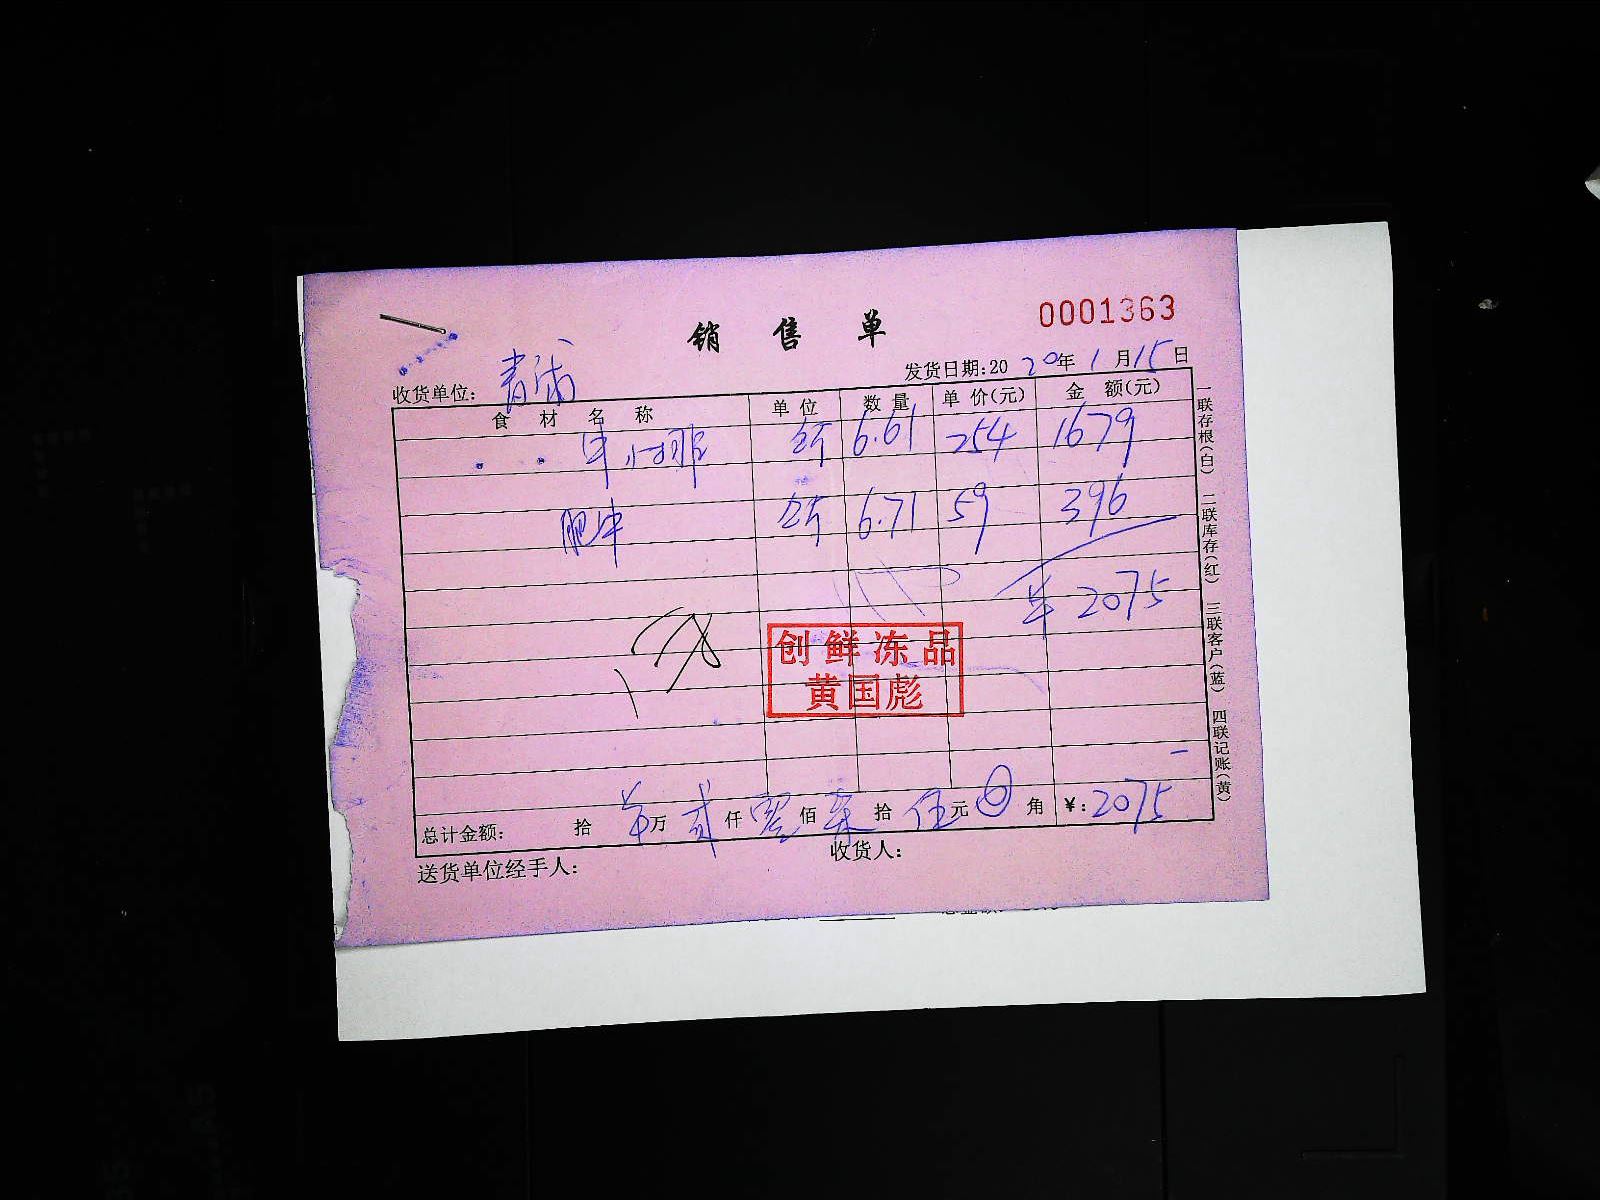 销售单
0001363
发货日期:2020年1月15日
收货单位: 青浦
食材名称 单位 数量 单价(元) 金额(元)
牛小排 斤 6.61 254 1679
肥牛 斤 6.71 59 396
¥2075
创鲜冻品
黄国彪
总计金额: 拾 万 贰仟 零佰 柒拾 伍元 0角 ¥:2075
送货单位经手人: 收货人:
一联存根(白) 二联库存(红) 三联客户(蓝) 四联记账(黄)